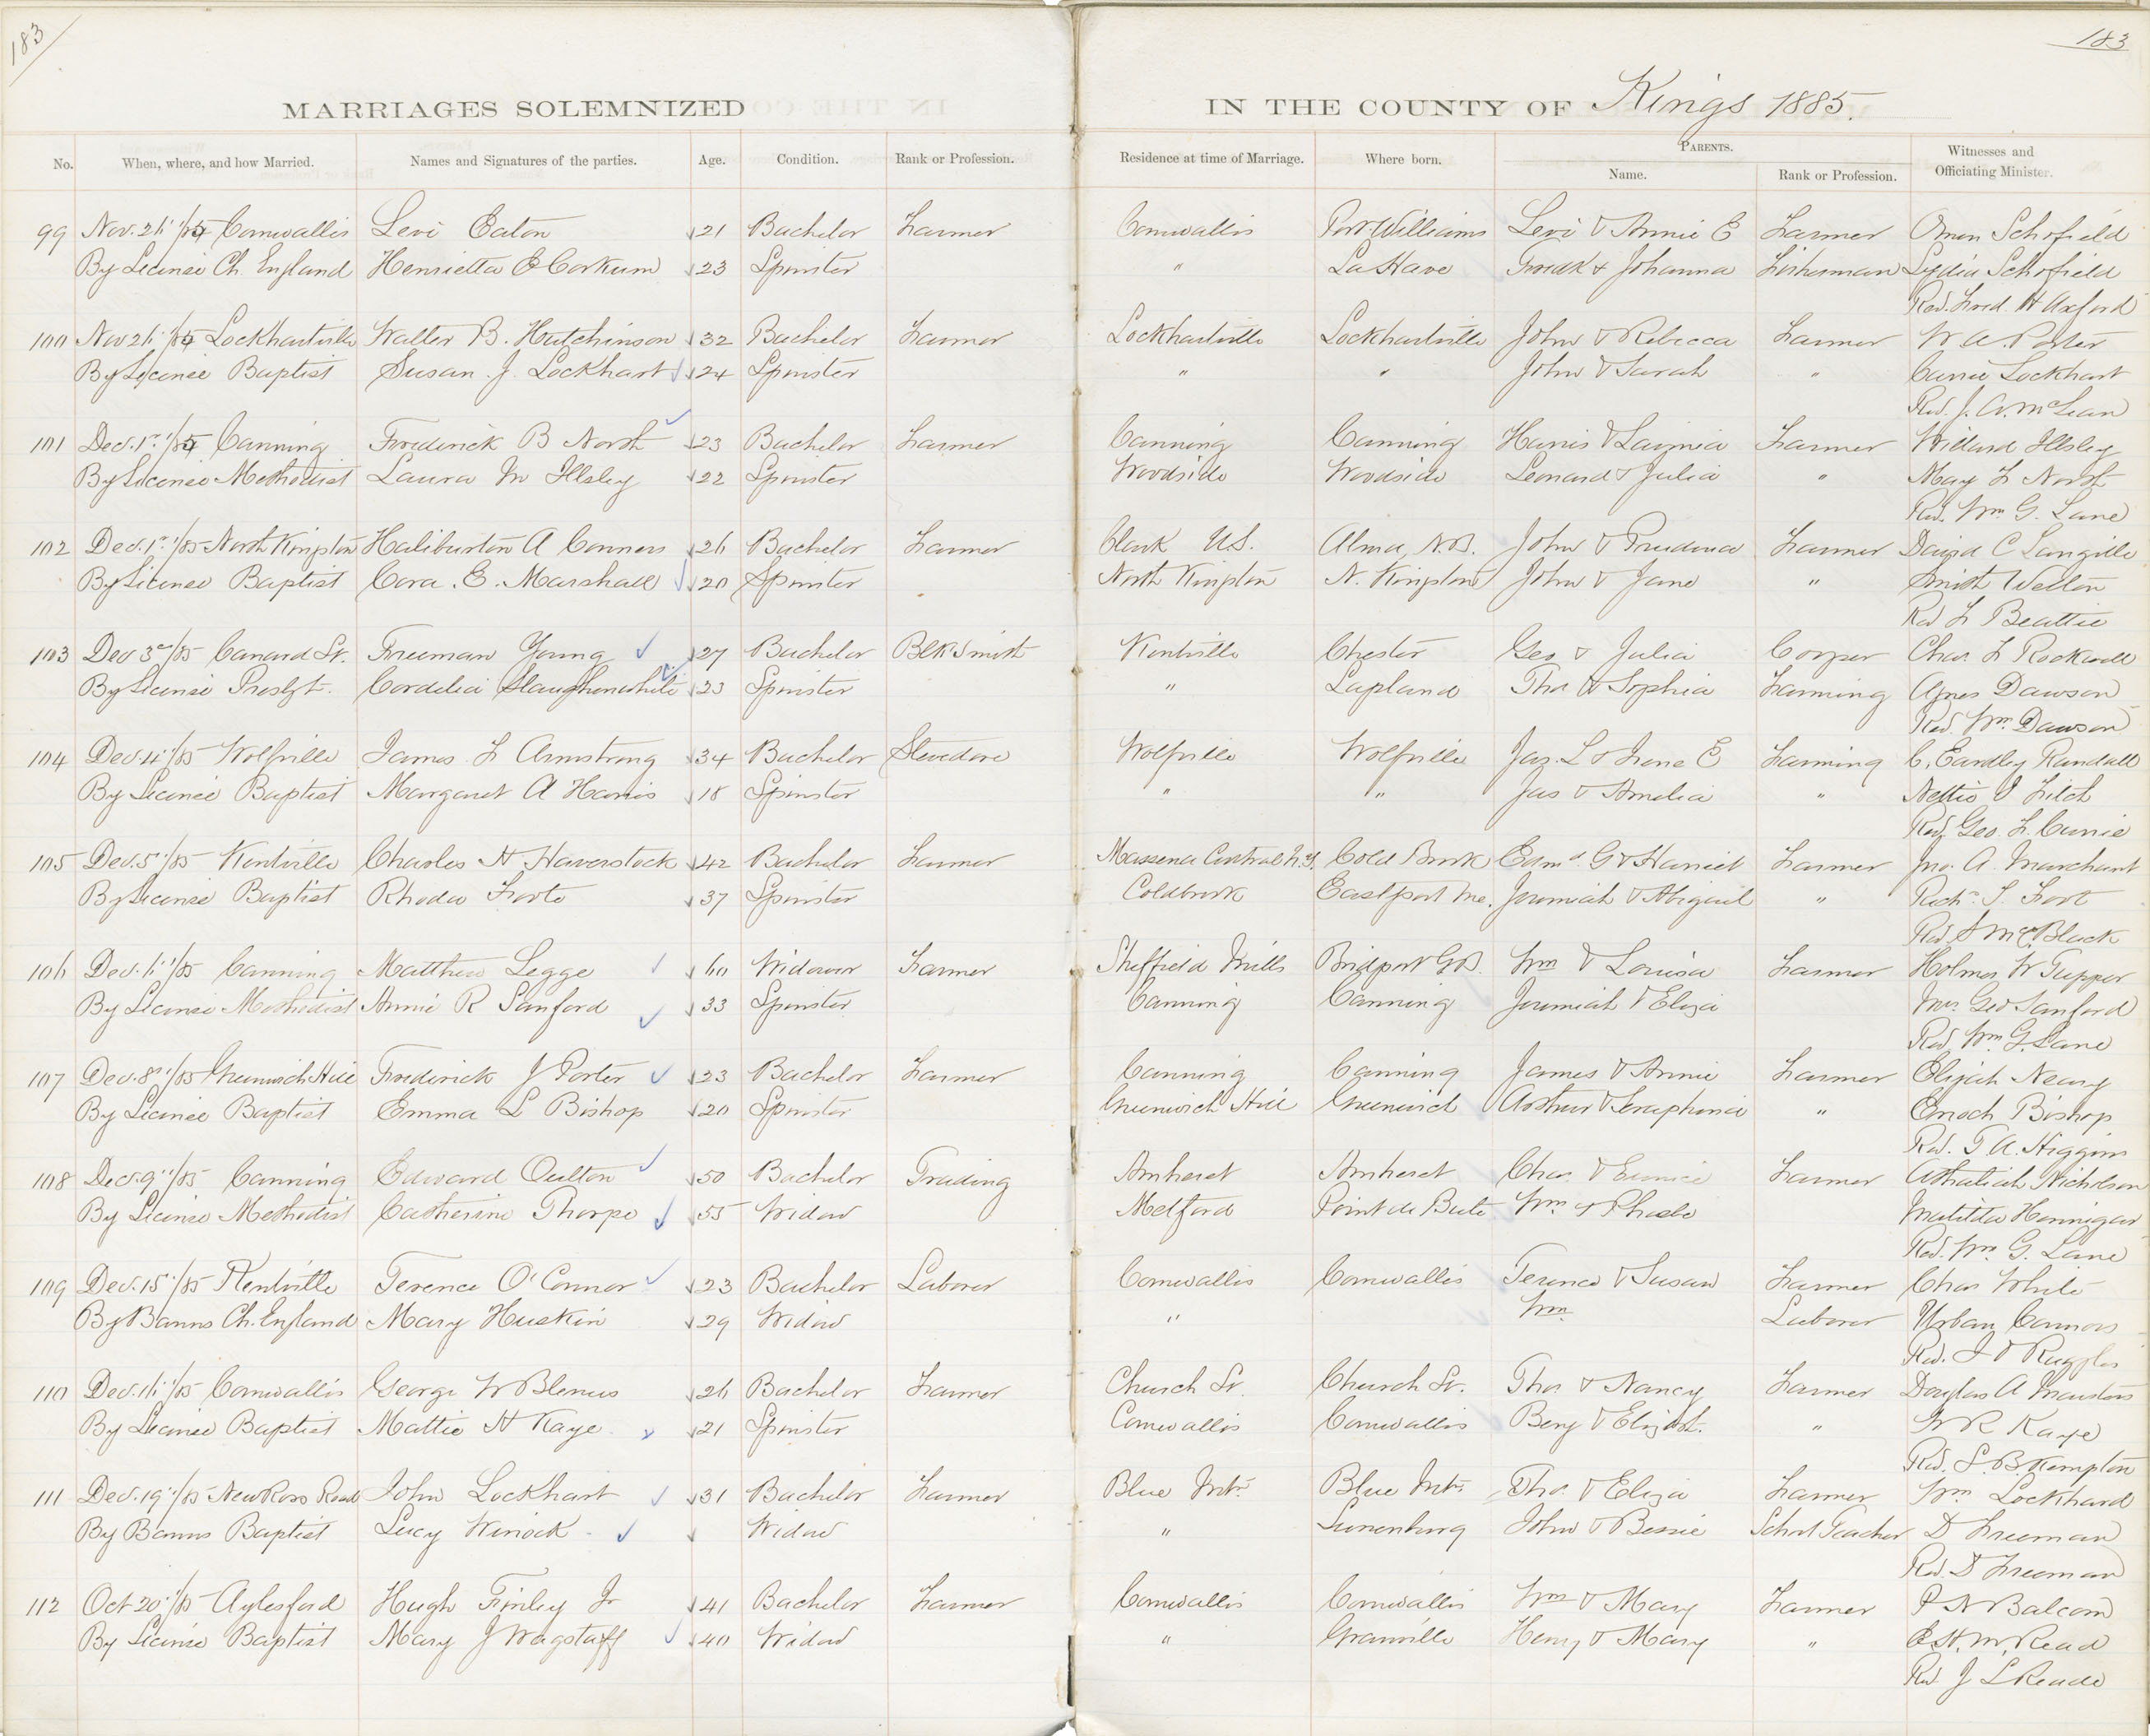 183
183
MARRIAGES SOLEMNIZED IN THE COUNTY OF Kings 1885.
No. When, where, and how Married. Names and Signatures of the parties. Age. Condition. Rank or Profession. Residence at time of Marriage. Where born. PARENTS. Name. Rank or Profession. Witnesses and Officiating Minister.
99 Nov. 26 /85 Cornwallis Levi Eaton 21 Bachelor Farmer Cornwallis Port Williams Levi & Annie E Farmer Schofield
By License Ch. England Henrietta E Corkum 23 Spinster " LaHave Fredk & Johanna Fisherman Lydia Schofield
Rev. Fred. H Axford
100 Nov 26 /85 Lockhartville Walter B. Hutchinson 32 Bachelor Farmer Lockhartville Lockhartville John & Rebecca Farmer W A. Porter
By License Baptist Susan. J. Lockhart 24 Spinster " " John & Sarah " Carrie Lockhart
Rev. J. A. McLean
101 Dec. 1st /85 Canning Frederick B North 23 Bachelor Farmer Canning Canning Harris & Lavinia Farmer Willard Illsley
By License Methodist Laura M Illsley 22 Spinster Woodside Woodside Leonard & Julia " May F North
Rev. Wm G. Lane
102 Dec. 1st /85 North Kingston Haliburton A Conners 26 Bachelor Farmer Clark U.S. Alma, N.B. John & Prudence Farmer David C Langille
By License Baptist Cora. E. Marshall 20 Spinster North Kingston N. Kingston John & Jane " Smith Welton
Rev F Beattie
103 Dec 3rd /85 Canard St. Freeman Young 27 Bachelor Blk Smith Kentville Chester Geo & Julia Cooper Chas. F Rockwell
By License Presbyt. Cordelia Slaughenwhite 23 Spinster " Lapland Thos & Sophia Farming Agnes Dawson
Rev. Wm Dawson
104 Dec. 4 /85 Wolfville James F Armstrong 34 Bachelor Stevedore Wolfville Wolfville Jas. L & Irene E Farming C. Eardley Randall
By License Baptist Margaret A Harris 18 Spinster " " Jas & Amelia " Nettie Fitch
Rev. Geo. F. Currie
105 Dec. 5 /85 Kentville Charles H Haverstock 42 Bachelor Farmer Massena Central N.Y. Cold Brook Edmd. G & Harriet Farmer Jno. A. Marchant
By License Baptist Rhoda Foote 37 Spinster Coldbrook Eastport Me. Jeremiah & Abigail " Foot
Rev S McC Black
106 Dec. 6 /85 Canning Matthew Legge 60 Widower Farmer Sheffield Mills Bridport G.B. Wm & Louisa Farmer Holmes W Tupper
By License Methodist Annie R Sanford 33 Spinster Canning Canning Jeremiah & Eliza Mrs. Geo Sanford
Rev. Wm G. Lane
107 Dec. 8th /85 Greenwich Hill Frederick J Porter 23 Bachelor Farmer Canning Canning James & Annie Farmer Elijah Neary
By License Baptist Emma L Bishop 20 Spinster Greenwich Hill Greenwich Arthur & Seraphina " Enoch Bishop
Rev. T A. Higgins
108 Dec. 9 /85 Canning Edward Oulton 50 Bachelor Trading Amherst Amherst Chas. & Eunice Farmer Athaliah Nicholson
By License Methodist Catherine Thorpe 55 Widow Medford Point de Bute Wm & Phoebe Matilda Hennigar
Rev. Wm G. Lane
109 Dec. 15 /85 Kentville Terence O'Connor 23 Bachelor Laborer Cornwallis Cornwallis Terence & Susan Farmer Chas White
By Banns Ch. England Mary Huskin 29 Widow " Wm Laborer Urban Connors
Rev. J O Ruggles
110 Dec. 16 /85 Cornwallis George W Blenus 26 Bachelor Farmer Church St. Church St. Thos. & Nancy Farmer Douglas A
By License Baptist Mattie H Kaye 21 Spinster Cornwallis Cornwallis Benj & Elizabt. " W R Kaye
Rev. S. B. Kempton
111 Dec. 19 /85 New Ross Road John Lockhart 31 Bachelor Farmer Blue Mtn. Blue Mtn. Thos. & Eliza Farmer Wm Lockhard
By Banns Baptist Lucy Winock Widow " Lunenburg John & Bessie School Teacher D Freeman
Rev. D Freeman
112 Oct 20 /85 Aylesford Hugh Finley Jr 41 Bachelor Farmer Cornwallis Cornwallis Wm & Mary Farmer P N Balcom
By License Baptist Mary J Wagstaff 40 Widow " Granville Henry & Mary " E. H. M. Read
Rev J L Reade